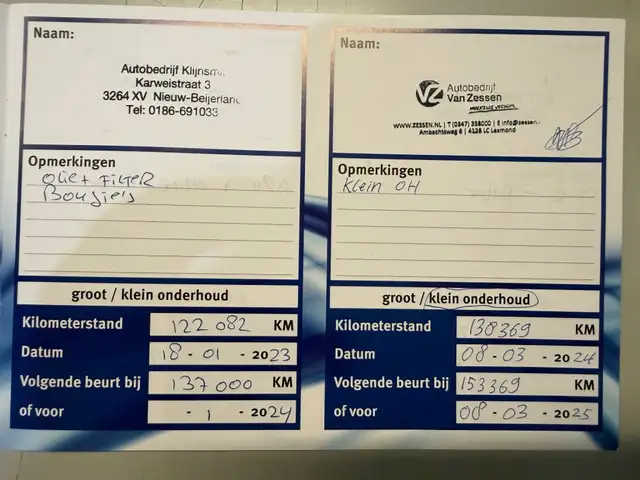 Naam:
Autobedrijf Klijnsm
Karweistraat 3
3264 XV Nieuw-Beijerland
Tel: 0186-691033
Opmerkingen
Olie + Filter
Bougie's
groot / klein onderhoud
Kilometerstand 122 082 KM
Datum 18 - 01 - 2023
Volgende beurt bij 137 000 KM
of voor - 1 - 2024
Naam:
VZ Autobedrijf
Van Zessen
WWW.ZESSEN.NL | T (0347) 358000 | E info@zessen.
Ambachtsweg 6 | 4128 LC Lexmond
Opmerkingen
Klein OH
groot / klein onderhoud
Kilometerstand 138369 KM
Datum 08 - 03 - 2024
Volgende beurt bij 153369 KM
of voor 08 - 03 - 2025